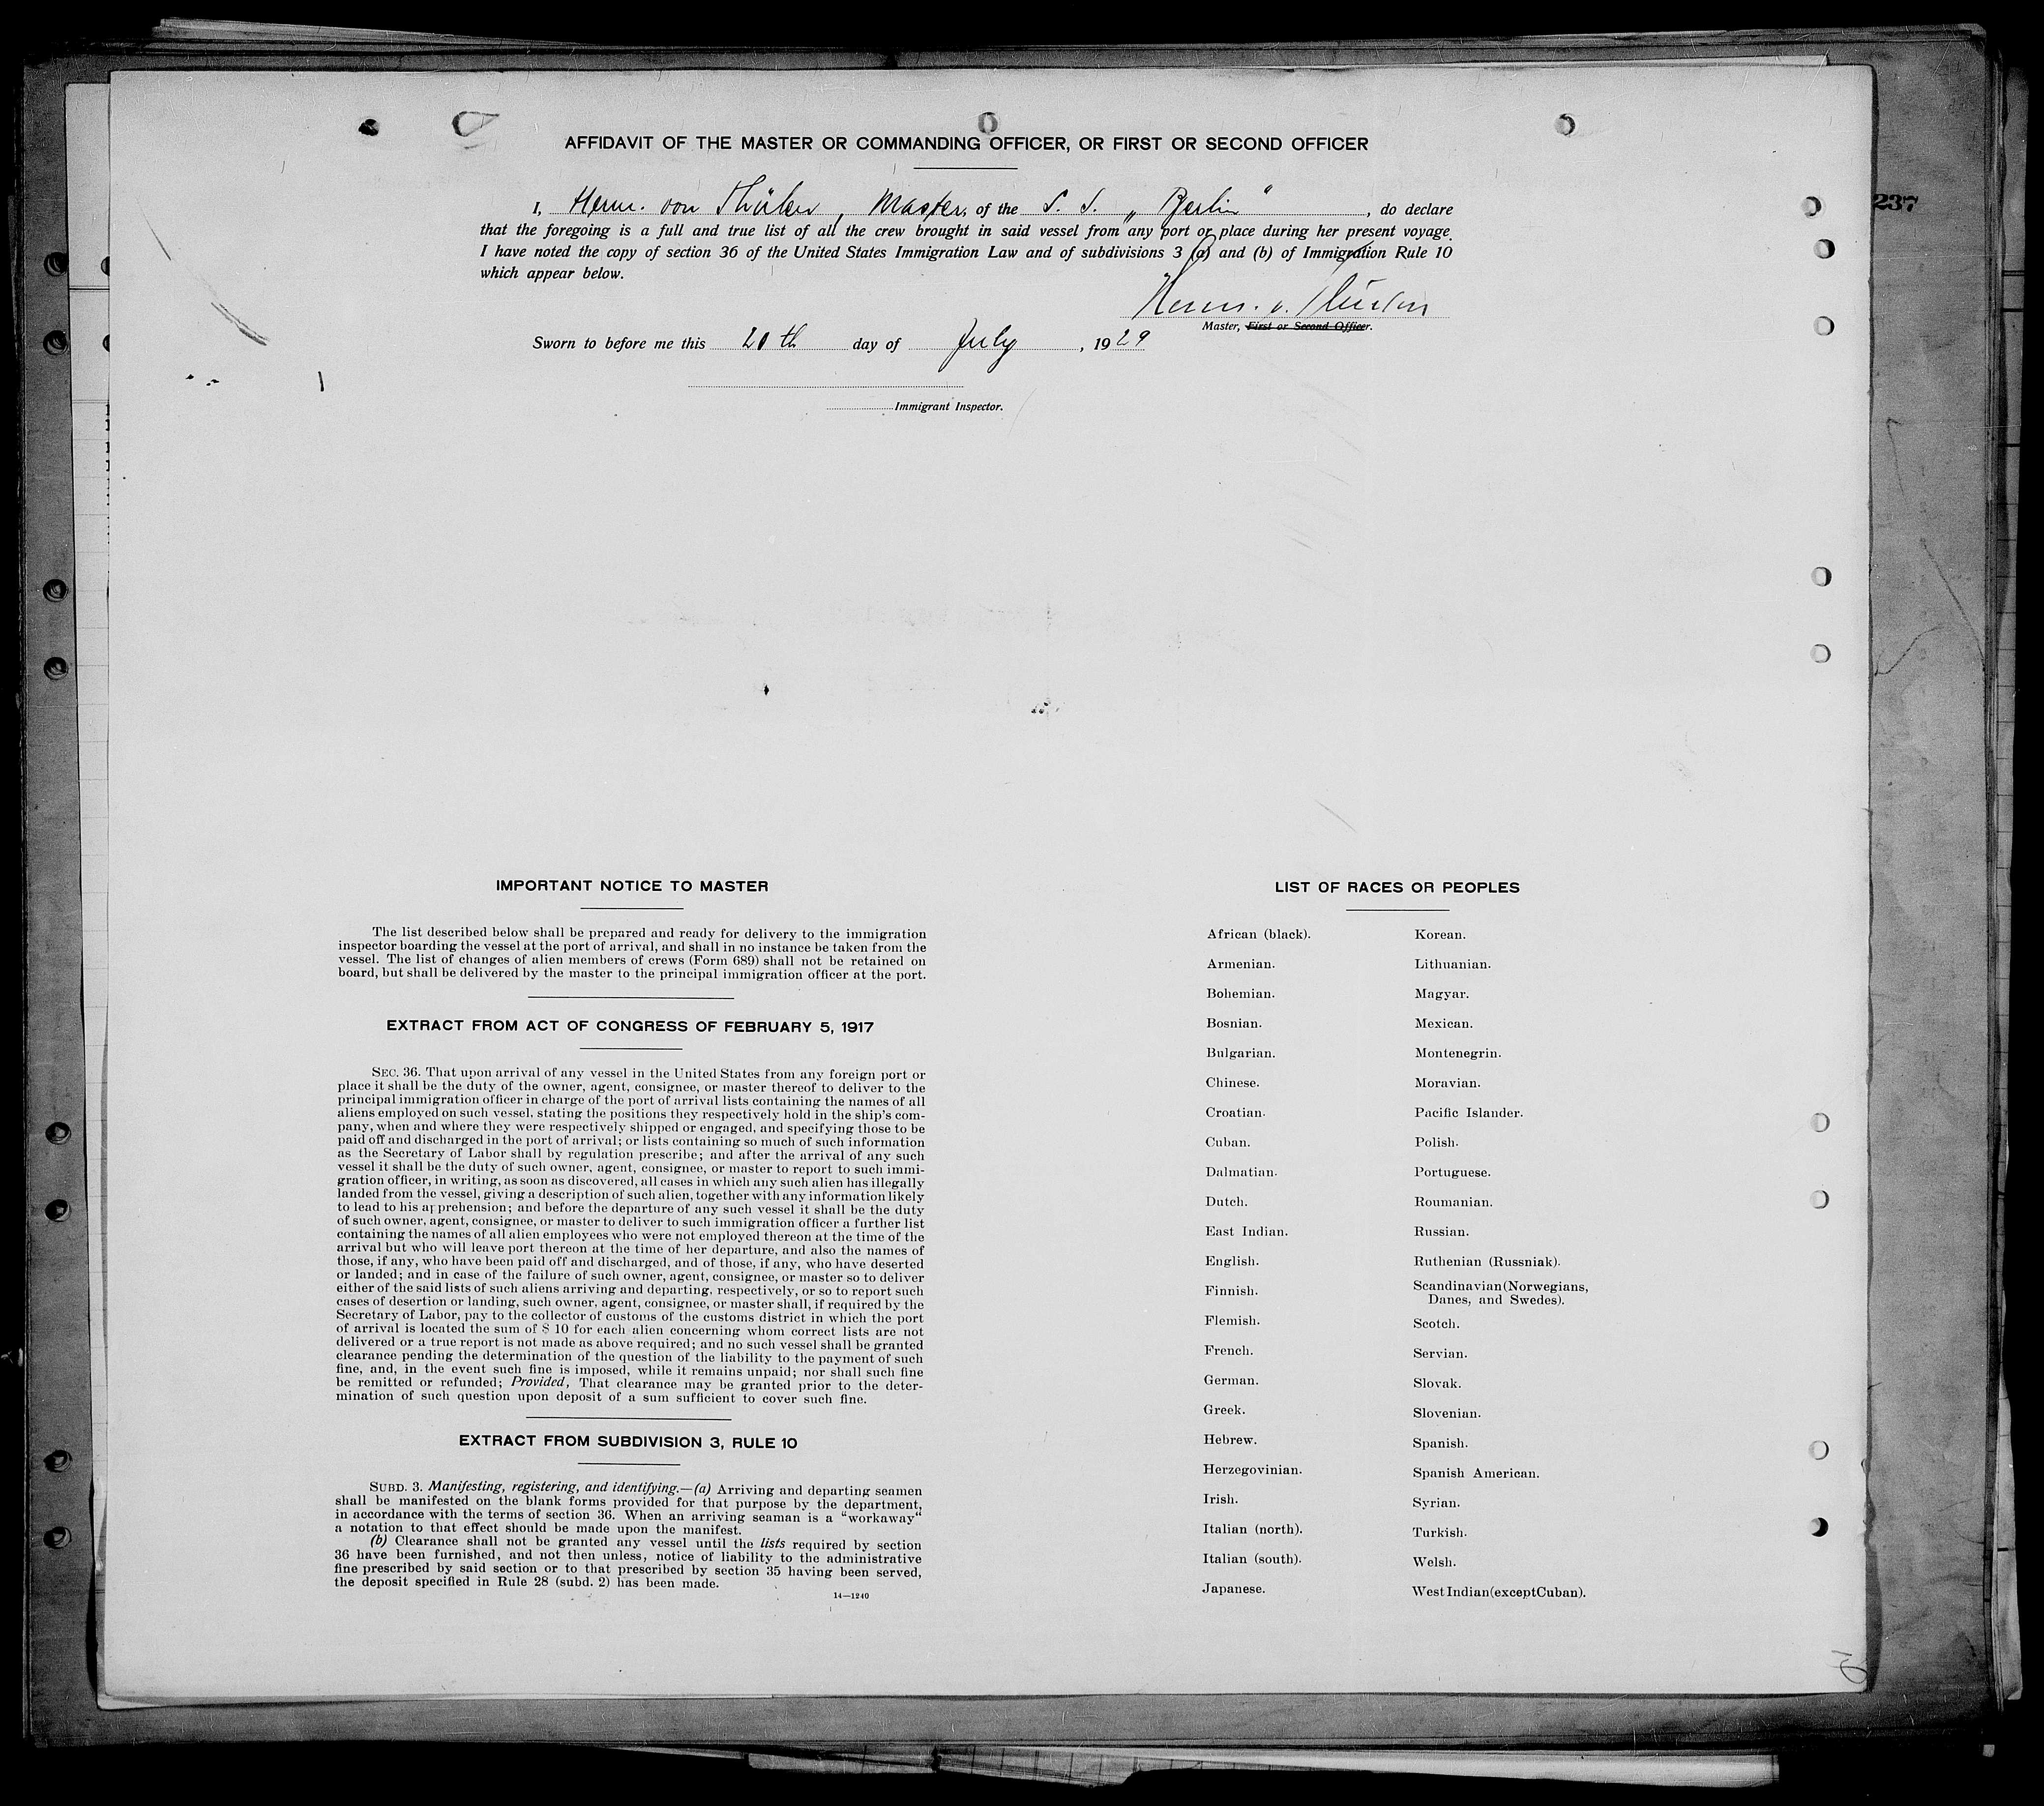 AFFIDAVIT OF THE MASTER OR COMMANDING OFFICER, OR FIRST OR SECOND OFFICER
I, Herm. von Thülen, Master, of the S. S. „Berlin“, do declare
that the foregoing is a full and true list of all the crew brought in said vessel from any port or place during her present voyage.
I have noted the copy of section 36 of the United States Immigration Law and of subdivisions 3 (a) and (b) of Immigration Rule 10
which appear below.
Herm. v. Thülen
Master, First or Second Officer.
Sworn to before me this 20th day of July, 1929
Immigrant Inspector.
237
IMPORTANT NOTICE TO MASTER
The list described below shall be prepared and ready for delivery to the immigration
inspector boarding the vessel at the port of arrival, and shall in no instance be taken from the
vessel. The list of changes of alien members of crews (Form 689) shall not be retained on
board, but shall be delivered by the master to the principal immigration officer at the port.
EXTRACT FROM ACT OF CONGRESS OF FEBRUARY 5, 1917
SEC. 36. That upon arrival of any vessel in the United States from any foreign port or
place it shall be the duty of the owner, agent, consignee, or master thereof to deliver to the
principal immigration officer in charge of the port of arrival lists containing the names of all
aliens employed on such vessel, stating the positions they respectively hold in the ship's com-
pany, when and where they were respectively shipped or engaged, and specifying those to be
paid off and discharged in the port of arrival; or lists containing so much of such information
as the Secretary of Labor shall by regulation prescribe; and after the arrival of any such
vessel it shall be the duty of such owner, agent, consignee, or master to report to such immi-
gration officer, in writing, as soon as discovered, all cases in which any such alien has illegally
landed from the vessel, giving a description of such alien, together with any information likely
to lead to his apprehension; and before the departure of any such vessel it shall be the duty
of such owner, agent, consignee, or master to deliver to such immigration officer a further list
containing the names of all alien employees who were not employed thereon at the time of the
arrival but who will leave port thereon at the time of her departure, and also the names of
those, if any, who have been paid off and discharged, and of those, if any, who have deserted
or landed; and in case of the failure of such owner, agent, consignee, or master so to deliver
either of the said lists of such aliens arriving and departing, respectively, or so to report such
cases of desertion or landing, such owner, agent, consignee, or master shall, if required by the
Secretary of Labor, pay to the collector of customs of the customs district in which the port
of arrival is located the sum of $ 10 for each alien concerning whom correct lists are not
delivered or a true report is not made as above required; and no such vessel shall be granted
clearance pending the determination of the question of the liability to the payment of such
fine, and, in the event such fine is imposed, while it remains unpaid; nor shall such fine
be remitted or refunded; Provided, That clearance may be granted prior to the deter-
mination of such question upon deposit of a sum sufficient to cover such fine.
EXTRACT FROM SUBDIVISION 3, RULE 10
SUBD. 3. Manifesting, registering, and identifying.—(a) Arriving and departing seamen
shall be manifested on the blank forms provided for that purpose by the department,
in accordance with the terms of section 36. When an arriving seaman is a “workaway“
a notation to that effect should be made upon the manifest.
(b) Clearance shall not be granted any vessel until the lists required by section
36 have been furnished, and not then unless, notice of liability to the administrative
fine prescribed by said section or to that prescribed by section 35 having been served,
the deposit specified in Rule 28 (subd. 2) has been made.
14—1240
LIST OF RACES OR PEOPLES
African (black).
Armenian.
Bohemian.
Bosnian.
Bulgarian.
Chinese.
Croatian.
Cuban.
Dalmatian.
Dutch.
East Indian.
English.
Finnish.
Flemish.
French.
German.
Greek.
Hebrew.
Herzegovinian.
Irish.
Italian (north).
Italian (south).
Japanese.
Korean.
Lithuanian.
Magyar.
Mexican.
Montenegrin.
Moravian.
Pacific Islander.
Polish.
Portuguese.
Roumanian.
Russian.
Ruthenian (Russniak).
Scandinavian (Norwegians,
Danes, and Swedes).
Scotch.
Servian.
Slovak.
Slovenian.
Spanish.
Spanish American.
Syrian.
Turkish.
Welsh.
West Indian (except Cuban).